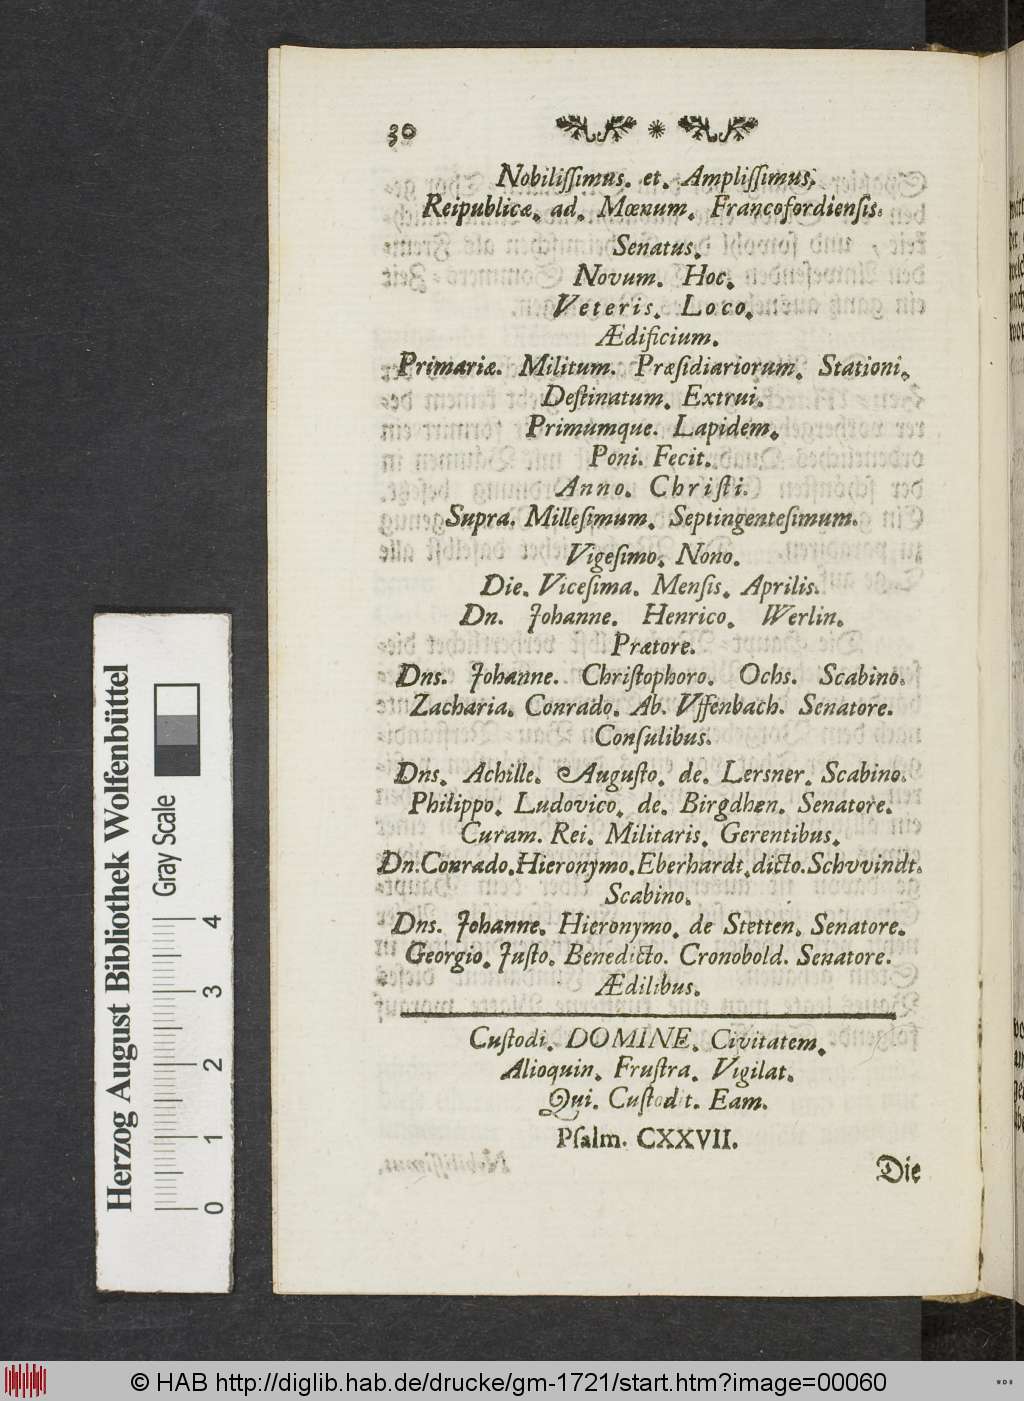 30
Nobiliſſimus. et. Ampliſſimus.
Reipublicæ. ad. Mœnum. Francofordienſis.
Senatus.
Novum. Hoc.
Veteris. Loco.
Ædificium.
Primariæ. Militum. Præſidiariorum. Stationi.
Deſtinatum. Extrui.
Primumque. Lapidem.
Poni. Fecit.
Anno. Chriſti.
Supra. Milleſimum. Septingenteſimum.
Vigeſimo. Nono.
Die. Viceſima. Menſis. Aprilis.
Dn. Johanne. Henrico. Werlin.
Prætore.
Dns. Johanne. Chriſtophoro. Ochs. Scabino.
Zacharia. Conrado. Ab. Vffenbach. Senatore.
Conſulibus.
Dns. Achille. Auguſto. de. Lersner. Scabino.
Philippo. Ludovico. de. Birgdhen. Senatore.
Curam. Rei. Militaris. Gerentibus.
Dn. Conrado. Hieronymo. Eberhardt. dicto. Schvvindt.
Scabino.
Dns. Johanne. Hieronymo. de Stetten. Senatore.
Georgio. Juſto. Benedicto. Cronobold. Senatore.
Ædilibus.
Cuſtodi. DOMINE. Civitatem.
Alioquin. Fruſtra. Vigilat.
Qui. Cuſtodit. Eam.
Pſalm. CXXVII.
Die
Herzog August Bibliothek Wolfenbüttel
Gray Scale
0 1 2 3 4
© HAB http://diglib.hab.de/drucke/gm-1721/start.htm?image=00060